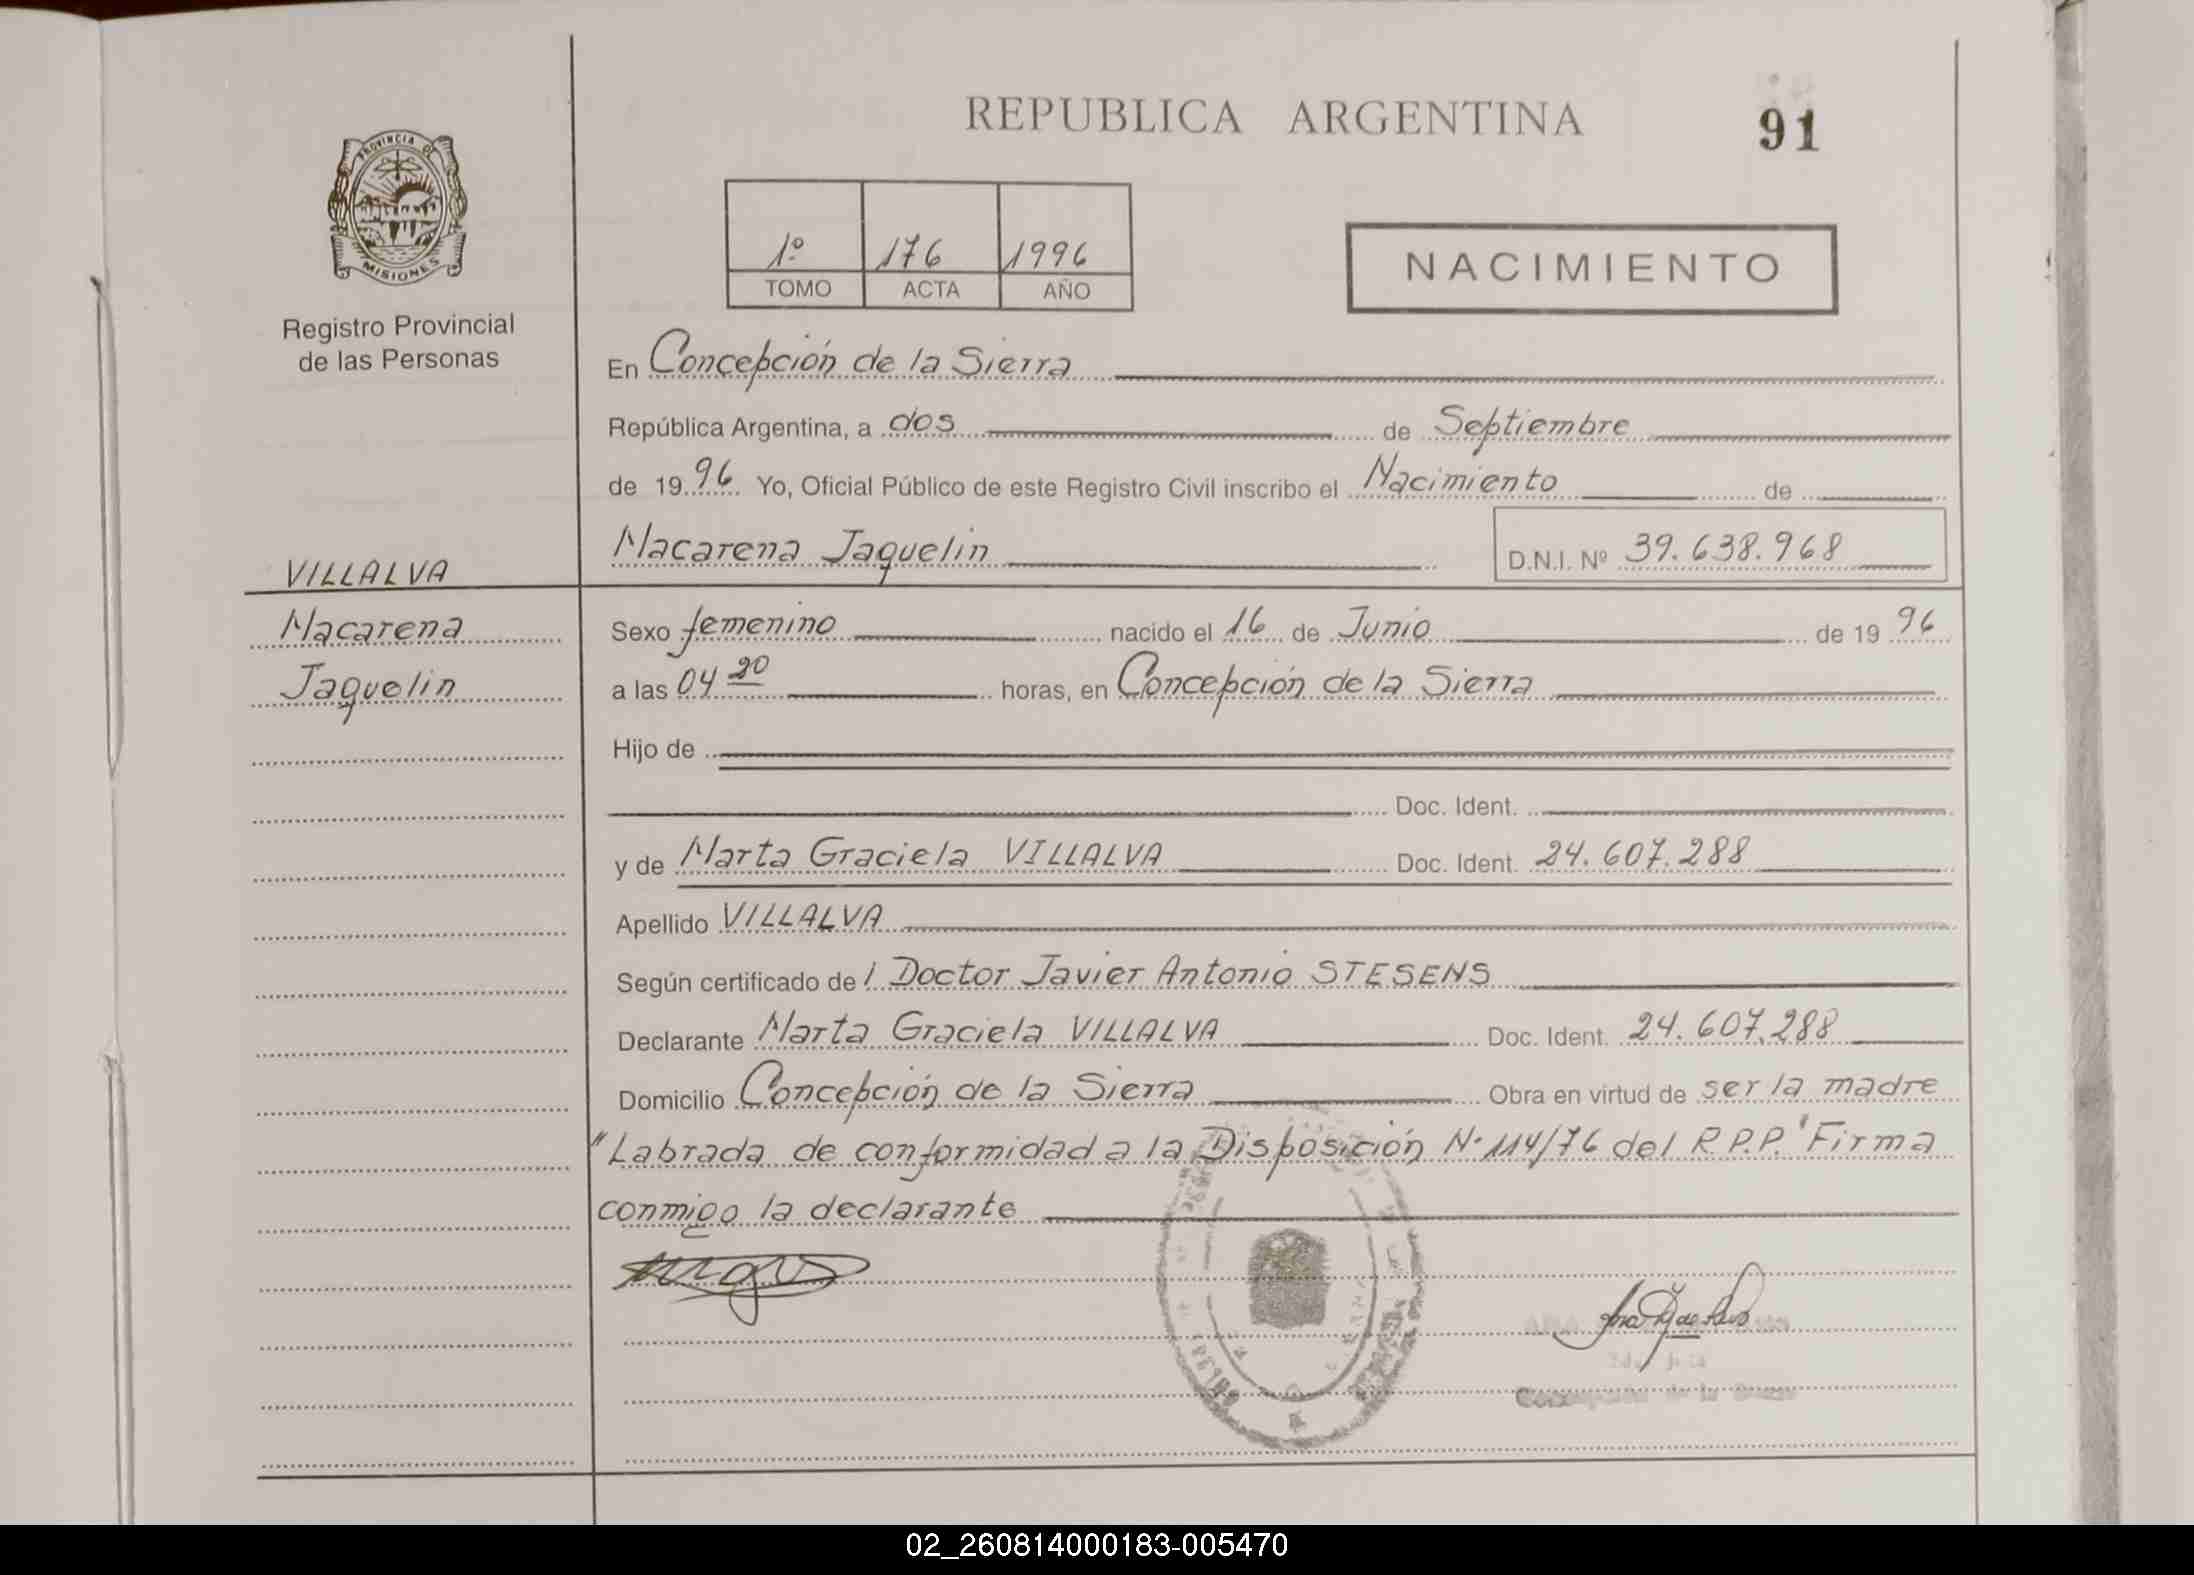 REPUBLICA ARGENTINA
91
PROVINCIA DE
MISIONES
Registro Provincial
de las Personas
1º 176 1996
TOMO ACTA AÑO
NACIMIENTO
En Concepción de la Sierra
República Argentina, a dos de Septiembre
de 1996 Yo, Oficial Público de este Registro Civil inscribo el Nacimiento de
Macarena Jaquelin D.N.I. Nº 39.638.968
VILLALVA
Macarena
Jaquelin
Sexo femenino nacido el 16 de Junio de 1996
a las 04 20 horas, en Concepción de la Sierra
Hijo de
Doc. Ident.
y de Marta Graciela VILLALVA Doc. Ident. 24.607.288
Apellido VILLALVA
Según certificado del Doctor Javier Antonio STESENS
Declarante Marta Graciela VILLALVA Doc. Ident. 24.607.288
Domicilio Concepción de la Sierra Obra en virtud de ser la madre
"Labrada de conformidad a la Disposición Nº 114/76 del R.P.P." Firma
conmigo la declarante
Concepción de la Sierra
02_260814000183-005470